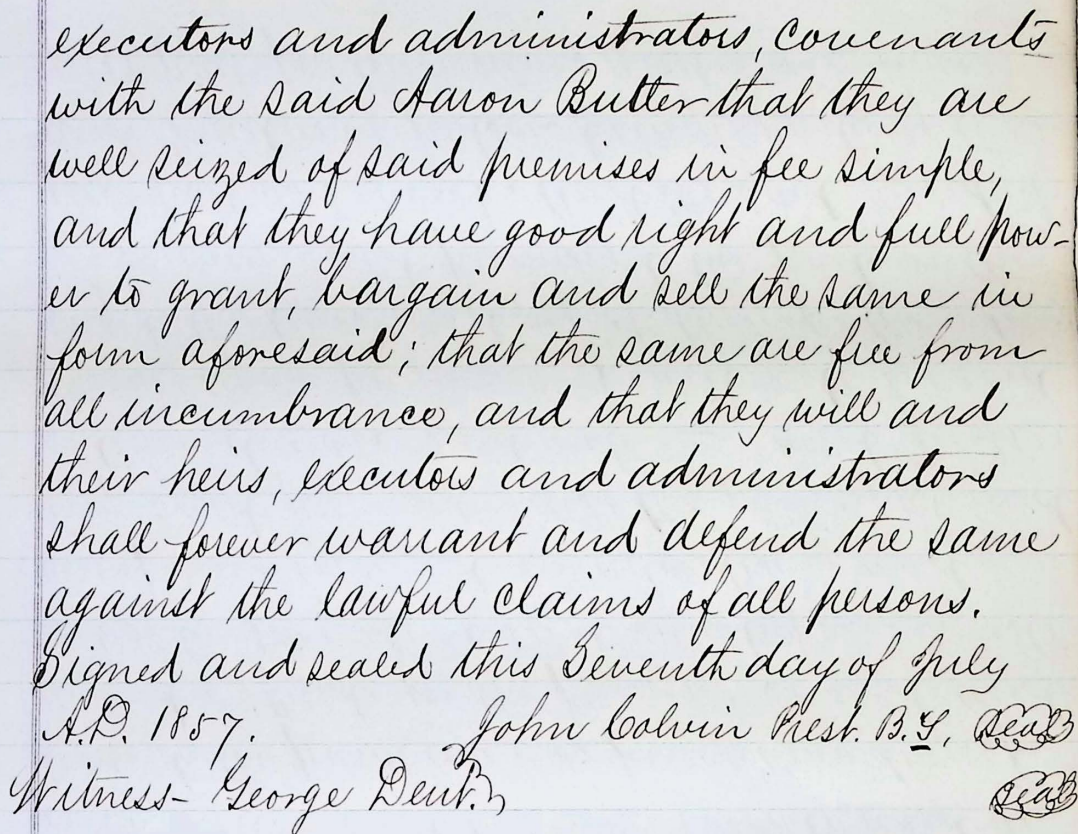 executors and administrators, covenants
with the said Aaron Butter that they are
well seized of said premises in fee simple,
and that they have good right and full pow-
er to grant, bargain and sell the same in
form aforesaid; that the same are free from
all incumbrance, and that they will and
their heirs, executors and administrators
shall forever warrant and defend the same
against the lawful claims of all persons.
Signed and sealed this Seventh day of July
A.D. 1857. John Colvin Prest. B. seal
Witness - George Dent. seal